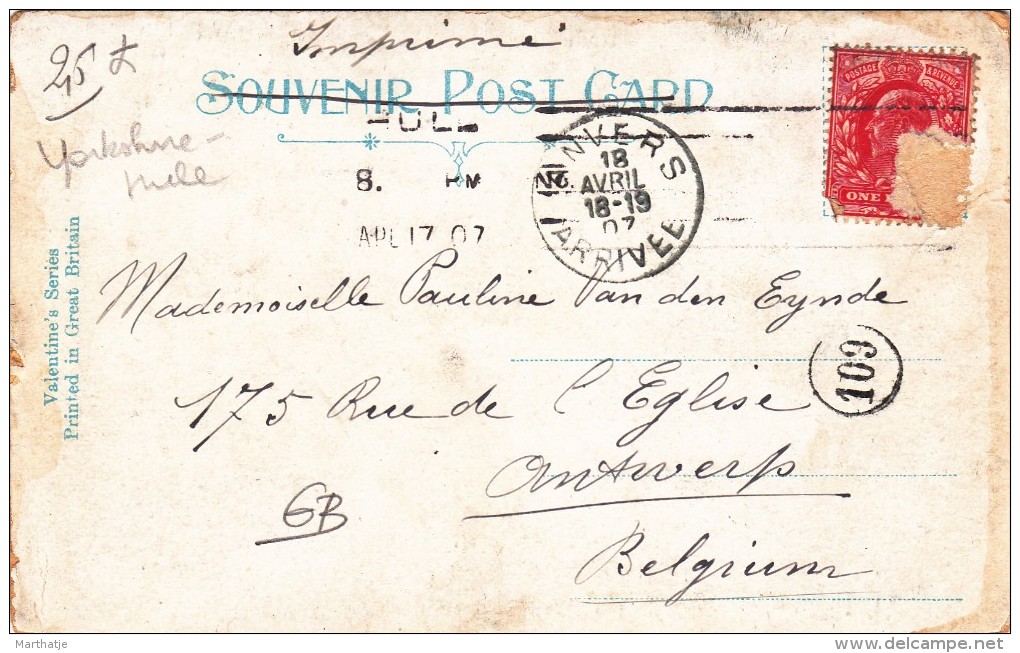 Imprimé
25
SOUVENIR POST CARD
POSTAGE & REVENUE
ONE
HULL
8. PM
APL 17 07
ANVERS
18
AVRIL
18-19
07
ARRIVEE
Yorkshire-
Hull
Valentine's Series
Printed in Great Britain
Mademoiselle Pauline Van den Eynde
103
175 Rue de l'Eglise
Antwerp
GB
Belgium
Marthatje
delcampe.net